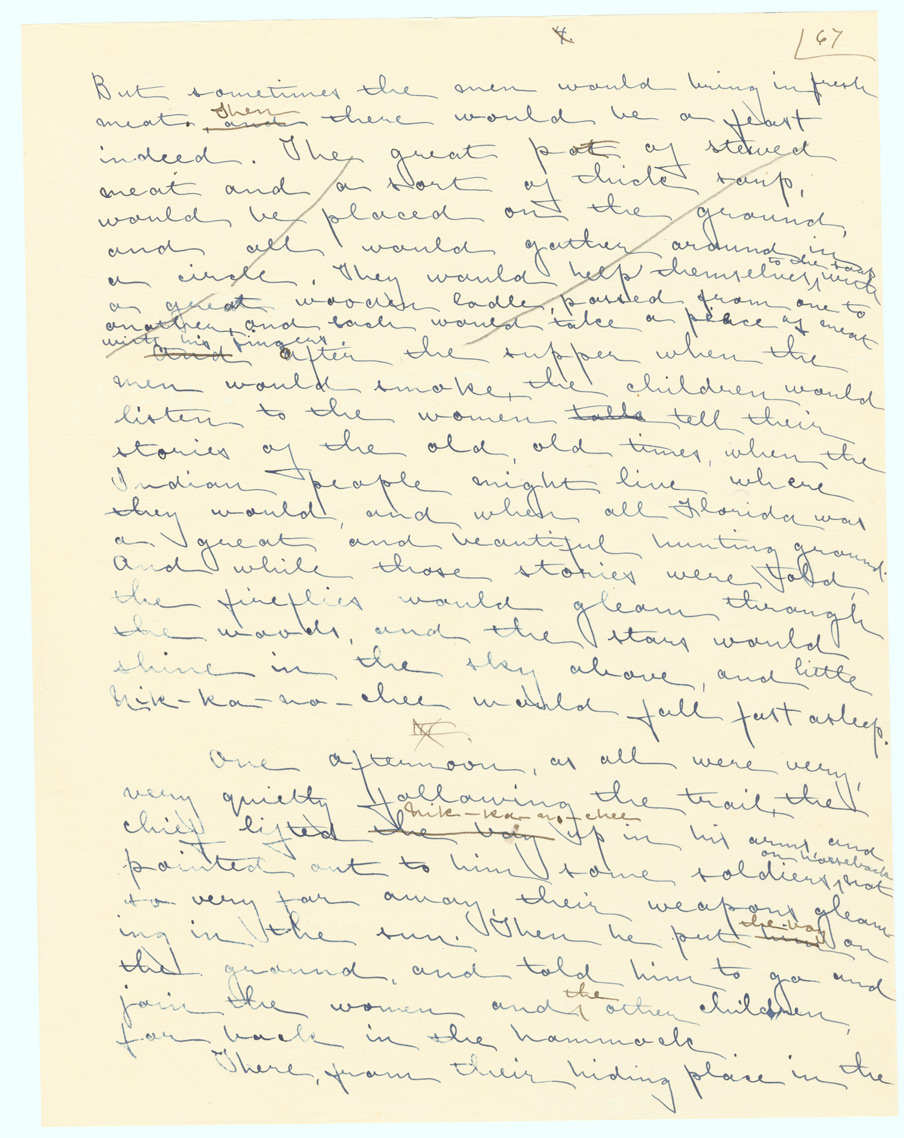 67
But sometimes the men would bring in fresh
meat. Then
and there would be a feast
indeed. The great pot of stewed
meat and a sort of thick soup,
would be placed on the ground,
and all would gather around in
a circle. They would help themselves, to the soup with
a great wooden ladle, passed from one to
another, and each would take a piece of meat
with his fingers.
And After the supper when the
men would smoke, the children would
listen to the women talk tell their
stories of the old, old times, when the
Indian people might live where
they would, and when all Florida was
a great and beautiful hunting ground.
And while those stories were told,
the fireflies would gleam through
the woods, and the stars would
shine in the sky above, and little
Nik-ka-no-chee would fall fast asleep.
One afternoon, as all were very,
very quietly following the trail, the
Nik-ka-no-chee
chief lifted the boy up in his arms and
pointed out to him some soldiers, on horseback not
so very far away, their weapons gleam-
ing in the sun. Then he put the boy him on
the ground, and told him to go and
join the women and the other children,
far back in the hammock.
There, from their hiding place in the